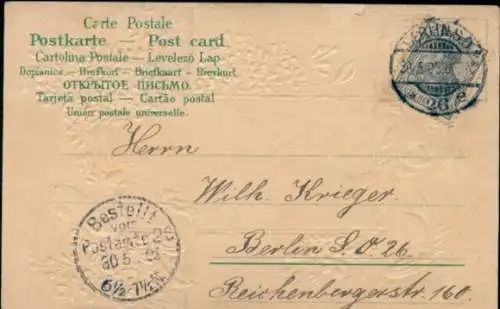 Carte Postale
Postkarte — Post card
Cartolina Postale — Levelező Lap
Dopisnice — Brefkort — Briefkaart — Brevkort
ОТКРЫТОЕ ПИСЬМО.
Tarjeta postal — Cartão postal
Union postale universelle.
BERLIN S.O.
30.5.
26
Herrn
Wilh. Krieger.
Bestellt
vom
Postamte 2
30 5
6½-7½N.
Berlin S.O. 26.
Reichenbergerstr. 160.